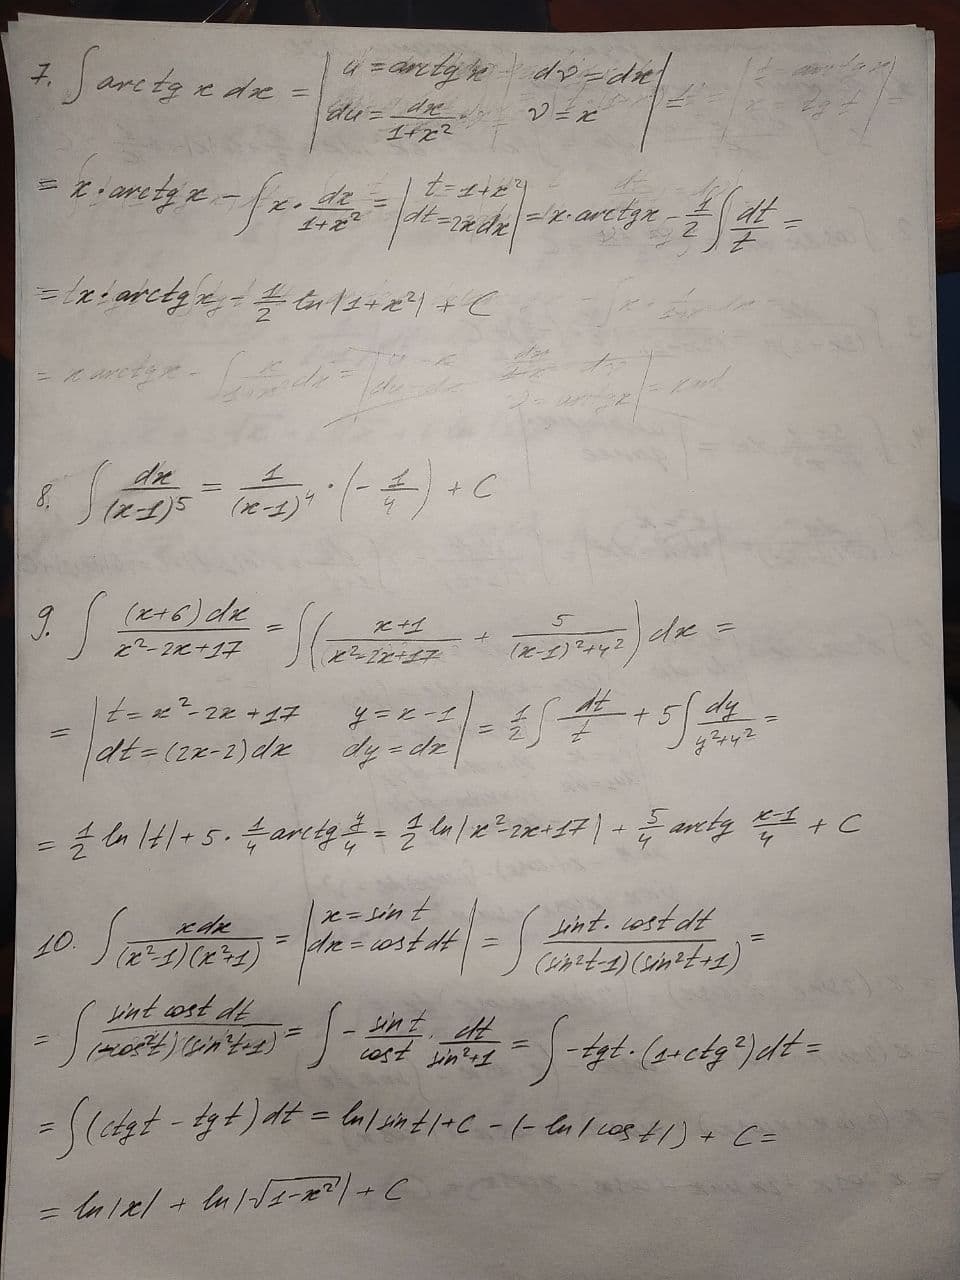 7. ∫ arctg x dx = | u = arctg x dv = dx du = dx/(1+x²) v = x | =
= x · arctg x - ∫ x · dx/(1+x²) = | t = 1+x² dt = 2x dx | = x · arctg x - 1/2 ∫ dt/t =
= x · arctg x - 1/2 ln |1+x²| + C
= x arctg x - ∫ x/(1+x²) dx =
8. ∫ dx/(x-1)⁵ = 1/(x-1)⁴ · (- 1/4) + C
9. ∫ (x+6) dx/(x²-2x+17) = ∫ ( (x+1)/(x²-2x+17) + 5/((x-1)²+4²) ) dx =
= | t = x²-2x+17 y = x-1 dt = (2x-2) dx dy = dx | = 1/2 ∫ dt/t + 5 ∫ dy/(y²+4²) =
= 1/2 ln |t| + 5 · 1/4 arctg y/4 = 1/2 ln |x²-2x+17| + 5/4 arctg (x-1)/4 + C
10. ∫ x dx/((x²-1)(x²+1)) = | x = sin t dx = cost dt | = ∫ sint · cost dt/((sin²t-1)(sin²t+1)) =
= ∫ sint cost dt/((-cos²t)(sin²t+1)) = ∫ - sin t/cost · dt/(sin²+1) = ∫ -tgt · (1+ctg²) dt =
= ∫ (ctgt - tgt) dt = ln |sint| + C - (- ln |cost|) + C =
= ln |x| + ln |√(1-x²)| + C